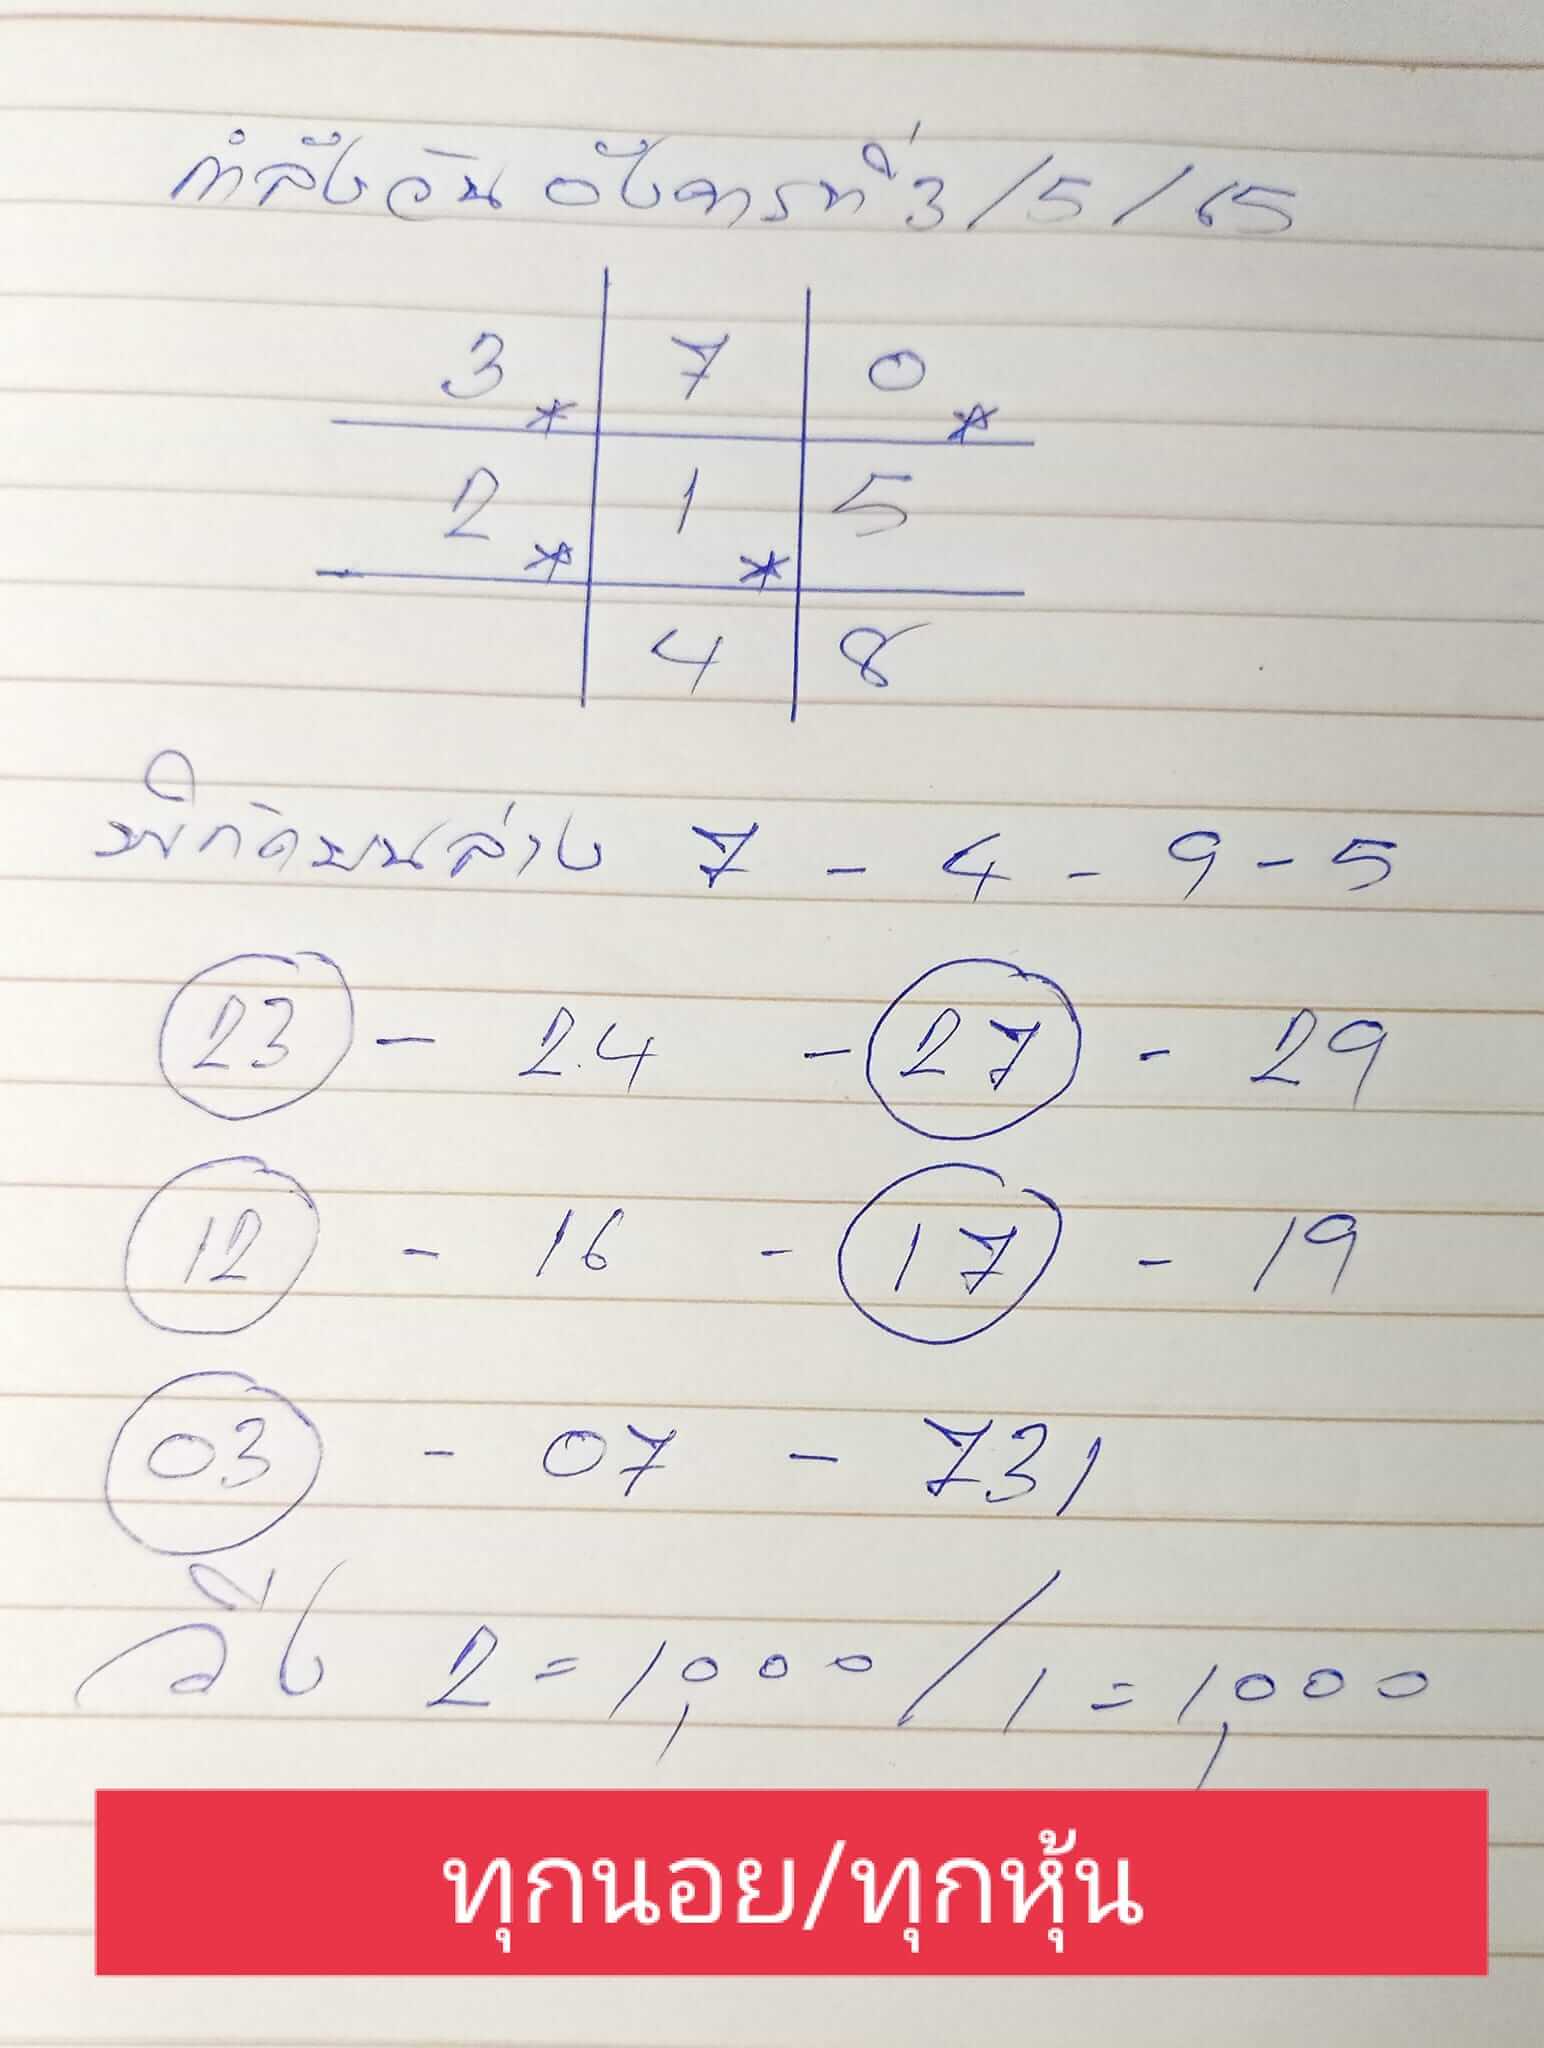 กำลังวันอังคารที่ 3/5/65
3* 7 0*
2* 1* 5
4 8
พิกัดบนล่าง 7 - 4 - 9 - 5
23 - 24 - 27 - 29
12 - 16 - 17 - 19
03 - 07 - 731
วิ่ง 2 = 1,000 / 1 = 1,000
ทุกนอย/ทุกหุ้น